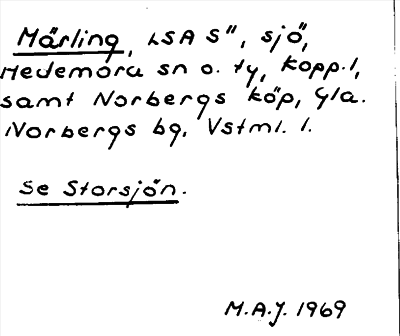 Märling, LSA S", sjö,
Hedemora sn o. ty, Kopp.l,
samt Norbergs köp, Gla.
Norbergs bg, Vstml. l.
Se Storsjön.
M.A.J. 1969